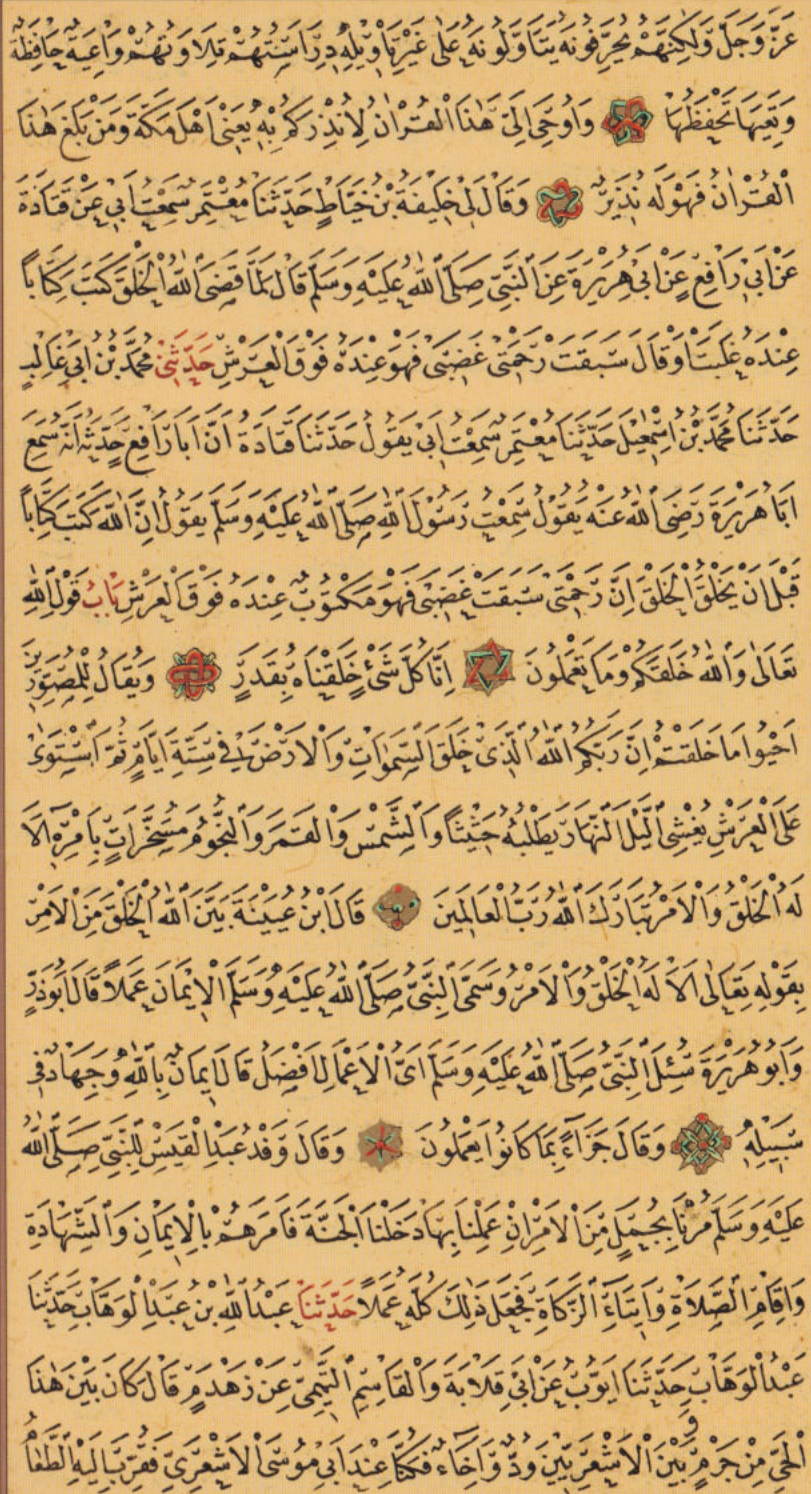 عَزَّ وَجَلَّ وَلَكِنَّهُمْ يُحَرِّفُونَهُ يَتَأَوَّلُونَهُ عَلَى غَيْرِ تَأْوِيلِهِ دِرَاسَتُهُمْ تِلَاوَتُهُمْ وَاعِيَةٌ حَافِظَةٌ
وَتَعِيَهَا تَحْفَظُهَا وَأُوحِيَ إِلَيَّ هٰذَا الْقُرْاٰنُ لِأُنْذِرَكُمْ بِهِ يَعْنِي أَهْلَ مَكَّةَ وَمَنْ بَلَغَ هٰذَا
الْقُرْاٰنُ فَهُوَ لَهُ نَذِيرٌ وَقَالَ لِي خَلِيفَةُ بْنُ خَيَّاطٍ حَدَّثَنَا مُعْتَمِرٌ سَمِعْتُ أَبِي عَنْ قَتَادَةَ
عَنْ أَبِي رَافِعٍ عَنْ أَبِي هُرَيْرَةَ عَنِ النَّبِيِّ صَلَّى اللّٰهُ عَلَيْهِ وَسَلَّمَ قَالَ لَمَّا قَضَى اللّٰهُ الْخَلْقَ كَتَبَ كِتَابًا
عِنْدَهُ غَلَبَتْ أَوْ قَالَ سَبَقَتْ رَحْمَتِي غَضَبِي فَهُوَ عِنْدَهُ فَوْقَ الْعَرْشِ حَدَّثَنِي مُحَمَّدُ بْنُ أَبِي غَالِبٍ
حَدَّثَنَا مُحَمَّدُ بْنُ إِسْمٰعِيلَ حَدَّثَنَا مُعْتَمِرٌ سَمِعْتُ أَبِي يَقُولُ حَدَّثَنَا قَتَادَةُ أَنَّ أَبَا رَافِعٍ حَدَّثَهُ أَنَّهُ سَمِعَ
أَبَا هُرَيْرَةَ رَضِيَ اللّٰهُ عَنْهُ يَقُولُ سَمِعْتُ رَسُولَ اللّٰهِ صَلَّى اللّٰهُ عَلَيْهِ وَسَلَّمَ يَقُولُ إِنَّ اللّٰهَ كَتَبَ كِتَابًا
قَبْلَ أَنْ يَخْلُقَ الْخَلْقَ إِنَّ رَحْمَتِي سَبَقَتْ غَضَبِي فَهُوَ مَكْتُوبٌ عِنْدَهُ فَوْقَ الْعَرْشِ بَابُ قَوْلِ اللّٰهِ
تَعَالَى وَاللّٰهُ خَلَقَكُمْ وَمَا تَعْمَلُونَ إِنَّا كُلَّ شَيْءٍ خَلَقْنَاهُ بِقَدَرٍ وَيُقَالُ لِلْمُصَوِّرِينَ
أَحْيُوا مَا خَلَقْتُمْ إِنَّ رَبَّكُمُ اللّٰهُ الَّذِي خَلَقَ السَّمٰوَاتِ وَالْأَرْضَ فِي سِتَّةِ أَيَّامٍ ثُمَّ اسْتَوَى
عَلَى الْعَرْشِ يُغْشِي اللَّيْلَ النَّهَارَ يَطْلُبُهُ حَثِيثًا وَالشَّمْسَ وَالْقَمَرَ وَالنُّجُومَ مُسَخَّرَاتٍ بِأَمْرِهِ أَلَا
لَهُ الْخَلْقُ وَالْأَمْرُ تَبَارَكَ اللّٰهُ رَبُّ الْعَالَمِينَ قَالَ ابْنُ عُيَيْنَةَ بَيَّنَ اللّٰهُ الْخَلْقَ مِنَ الْأَمْرِ
بِقَوْلِهِ تَعَالَى أَلَا لَهُ الْخَلْقُ وَالْأَمْرُ وَسَمَّى النَّبِيُّ صَلَّى اللّٰهُ عَلَيْهِ وَسَلَّمَ الْإِيمَانَ عَمَلًا قَالَ أَبُو ذَرٍّ
وَأَبُو هُرَيْرَةَ سُئِلَ النَّبِيُّ صَلَّى اللّٰهُ عَلَيْهِ وَسَلَّمَ أَيُّ الْأَعْمَالِ أَفْضَلُ قَالَ إِيمَانٌ بِاللّٰهِ وَجِهَادٌ فِي
سَبِيلِهِ وَقَالَ جَزَاءً بِمَا كَانُوا يَعْمَلُونَ وَقَالَ وَفْدُ عَبْدِ الْقَيْسِ لِلنَّبِيِّ صَلَّى اللّٰهُ
عَلَيْهِ وَسَلَّمَ مُرْنَا بِجُمَلٍ مِنَ الْأَمْرِ إِنْ عَمِلْنَا بِهَا دَخَلْنَا الْجَنَّةَ فَأَمَرَهُمْ بِالْإِيمَانِ وَالشَّهَادَةِ
وَإِقَامِ الصَّلَاةِ وَإِيتَاءِ الزَّكَاةِ فَجَعَلَ ذٰلِكَ كُلَّهُ عَمَلًا حَدَّثَنَا عَبْدُ اللّٰهِ بْنُ عَبْدِ الْوَهَّابِ حَدَّثَنَا
عَبْدُ الْوَهَّابِ حَدَّثَنَا أَيُّوبُ عَنْ أَبِي قِلَابَةَ وَالْقَاسِمِ التَّمِيمِيِّ عَنْ زَهْدَمٍ قَالَ كَانَ بَيْنَ هٰذَا
الْحَيِّ مِنْ جَرْمٍ وَبَيْنَ الْأَشْعَرِيِّينَ وُدٌّ وَإِخَاءٌ فَكُنَّا عِنْدَ أَبِي مُوسَى الْأَشْعَرِيِّ فَقُرِّبَ إِلَيْهِ الطَّعَامُ